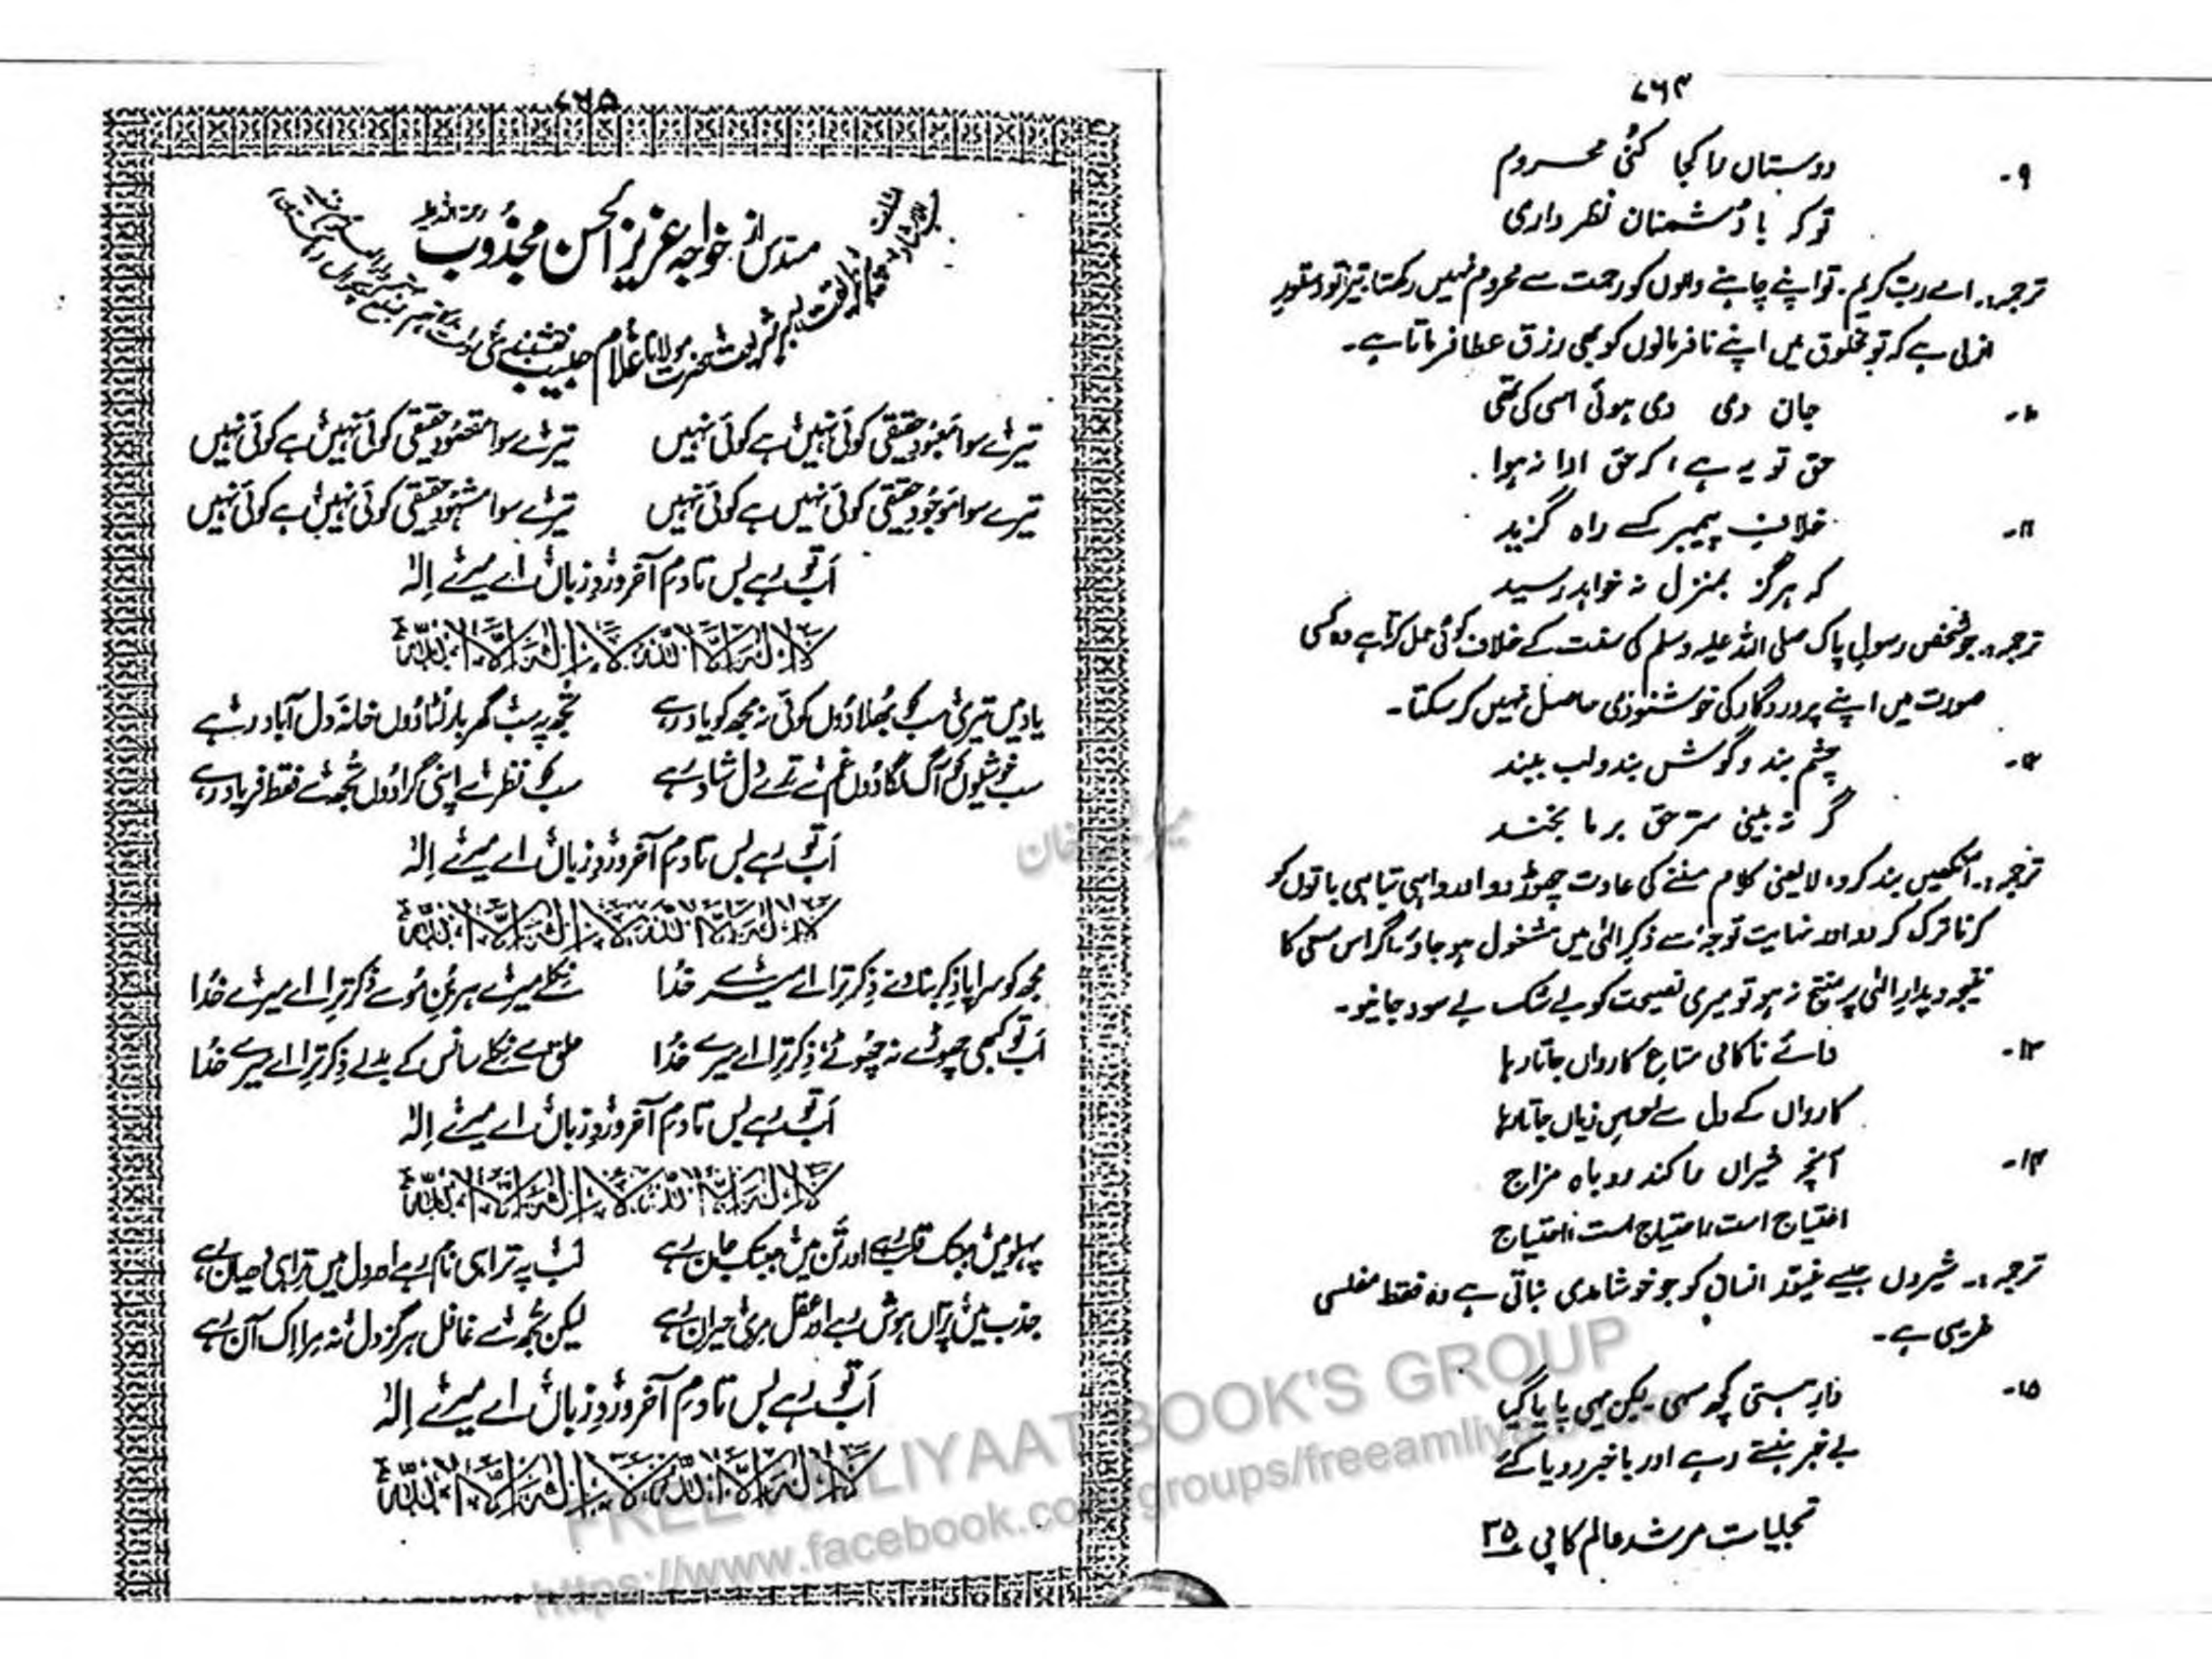 ۷۶۴
۹۔ دوستاں را کجا کنُی محروم
تو کہ با دُشمنان نظر داری
ترجمہ:۔ اے ربِ کریم۔ تو اپنے چاہنے والوں کو رحمت سے محروم نہیں رکھتا، تیرا تو دستورِ
ازلی ہے کہ تو مخلوق میں اپنے نافرمانوں کو بھی رزق عطا فرماتا ہے۔
۱۰۔ جان دی دی ہوئی اسی کی تھی
حق تو یہ ہے، کہ حق ادا نہ ہوا
۱۱۔ خلافِ پیمبر کسے راہ گزید
کہ ہرگز بمنزل نہ خواہد رسید
ترجمہ:۔ جو شخص رسولِ پاک صلی اللہ علیہ وسلم کی سنت کے خلاف کوئی عمل کرتا ہے وہ کسی
صورت میں اپنے پروردگار کی خوشنودی حاصل نہیں کر سکتا۔
۱۲۔ چشم بند و گوش بند و لب ببند
گر نہ بینی سترِ حق بر ما بخند
ترجمہ:۔ آنکھیں بند کرو، لایعنی کلام سننے کی عادت چھوڑ دو اور واہی تباہی باتوں کو
کرنا ترک کر دو اور نہایت توجہ سے ذکرِ الٰہی میں مشغول ہو جاؤ، اگر اس سعی کا
نتیجہ دیدارِ الٰہی پر منتج نہ ہو تو میری نصیحت کو بے شک بے سود جانیو۔
۱۳۔ وائے ناکامی متاعِ کارواں جاتا رہا
کارواں کے دل سے احساسِ زیاں جاتا رہا
۱۴۔ آنچہ شیراں را کند روباہ مزاج
احتیاج است احتیاج است احتیاج
ترجمہ:۔ شیروں جیسے غیور انسان کو جو خوشامدی بناتی ہے وہ فقط مفلسی
غریبی ہے۔
۱۵۔ نارِ ہستی کچھ سہی لیکن یہی پایا گیا
بے خبر ہنستے رہے اور باخبر رویا کئے
تجلیات مرشد عالم کاپی ۳۵
۷۶۵
مسدس از خواجہ عزیز الحسن مجذُوب رحمۃ اللہ علیہ
حضرت مولانا غلام حبیب نقشبندی
تیرے سوا معبُودِ حقیقی کوئی نہیں ہے کوئی نہیں تیرے سوا مقصُودِ حقیقی کوئی نہیں ہے کوئی نہیں
تیرے سوا موجُودِ حقیقی کوئی نہیں ہے کوئی نہیں تیرے سوا مشہُودِ حقیقی کوئی نہیں ہے کوئی نہیں
اَب تو رہے بس تا دمِ آخر وردِ زباں اے میرے اِلٰہ
لَا اِلٰہَ اِلَّا اللّٰہُ لَا اِلٰہَ اِلَّا اللّٰہُ
یاد میں تیری سب کو بھُلا دُوں کوئی نہ مجھ کو یاد رہے تجھ پر سب گھر بار لُٹا دُوں خانۂ دل آباد رہے
سب خوشیوں کو آگ لگا دُوں غم سے ترے دل شاد رہے سب کو نظر سے اپنی گرا دُوں تجھ سے فقط فریاد رہے
اَب تو رہے بس تا دمِ آخر وردِ زباں اے میرے اِلٰہ
لَا اِلٰہَ اِلَّا اللّٰہُ لَا اِلٰہَ اِلَّا اللّٰہُ
مجھ کو سراپا ذِکر بنا دے ذِکر ترا اے میرے خدُا نِکلے میرے ہر بُنِ مُو سے ذِکر ترا اے میرے خدُا
اَب تو کبھی چھوڑے نہ چھُوٹے ذِکر ترا اے میرے خدُا حلق سے نِکلے سانس کے بدلے ذِکر ترا اے میرے خدُا
اَب تو رہے بس تا دمِ آخر وردِ زباں اے میرے اِلٰہ
لَا اِلٰہَ اِلَّا اللّٰہُ لَا اِلٰہَ اِلَّا اللّٰہُ
پہلو میں جب تک قلب رہے اور تن میں جب تک جان رہے لب پہ ترا ہی نام رہے اور دل میں ترا ہی دھیان رہے
جذب میں پرّاں ہوش رہے اور عقل مری حیران رہے لیکن تُجھ سے غافل ہرگز دل نہ مرا اِک آن رہے
اَب تو رہے بس تا دمِ آخر وردِ زباں اے میرے اِلٰہ
لَا اِلٰہَ اِلَّا اللّٰہُ لَا اِلٰہَ اِلَّا اللّٰہُ
FREE AMLIYAAT BOOK'S GROUP
https://www.facebook.com/groups/freeamliyaat